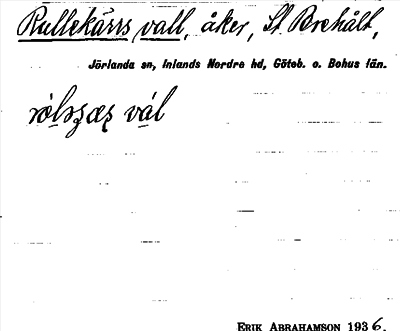 Rullekärrs vall, åker, St. Brehålt,
Jörlanda sn, Inlands Nordre hd, Göteb. o. Bohus län.
vál
ERIK ABRAHAMSON 1936.